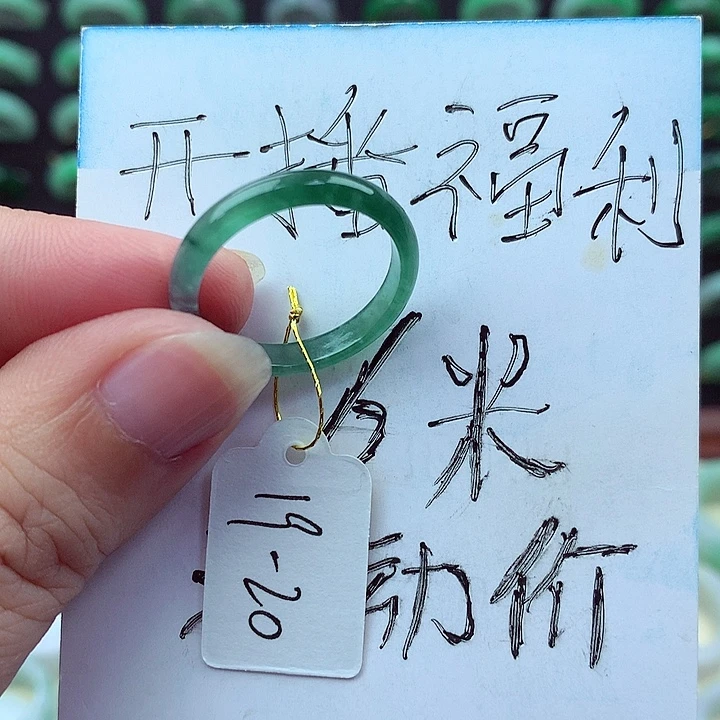 开播福利
6米
动价
19-20